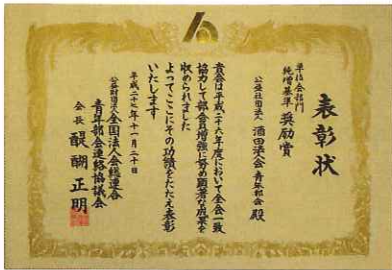 表彰状
単位会部門
純増基準 奨励賞
公益社団法人 酒田法人会 青年部会 殿
貴会は平成二十六年度において全会一致
協力して部会増強に努め顕著な成果を
収められました
よってここにその功績をたたえ表彰
いたします
平成二十七年十一月二十日
公益財団法人 全国法人会総連合
青年部会連絡協議会
会長 醍醐正明